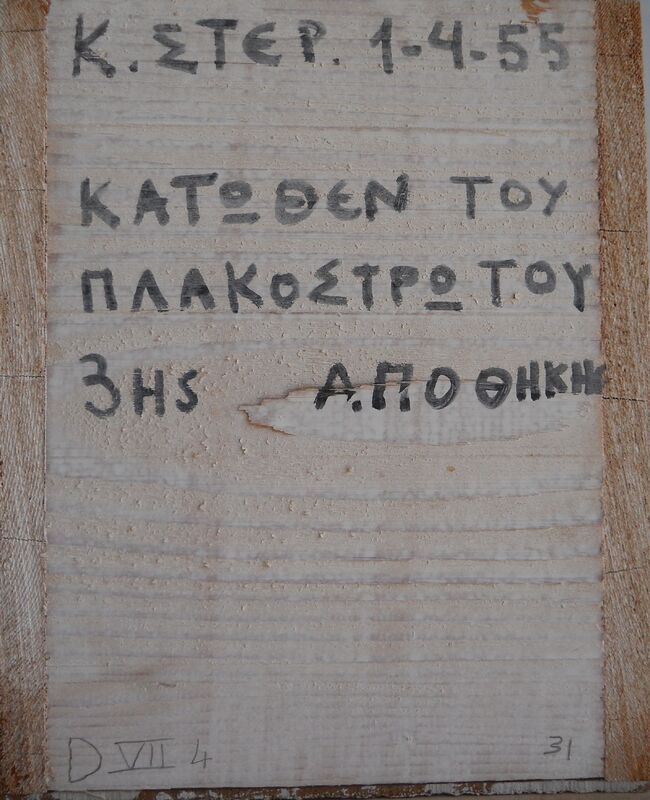 Κ. ΣΤΕΡ. 1-4-55
ΚΑΤΩΘΕΝ ΤΟΥ
ΠΛΑΚΟΣΤΡΩΤΟΥ
3ΗΣ ΑΠΟΘΗΚΗΣ
D VII 4
31